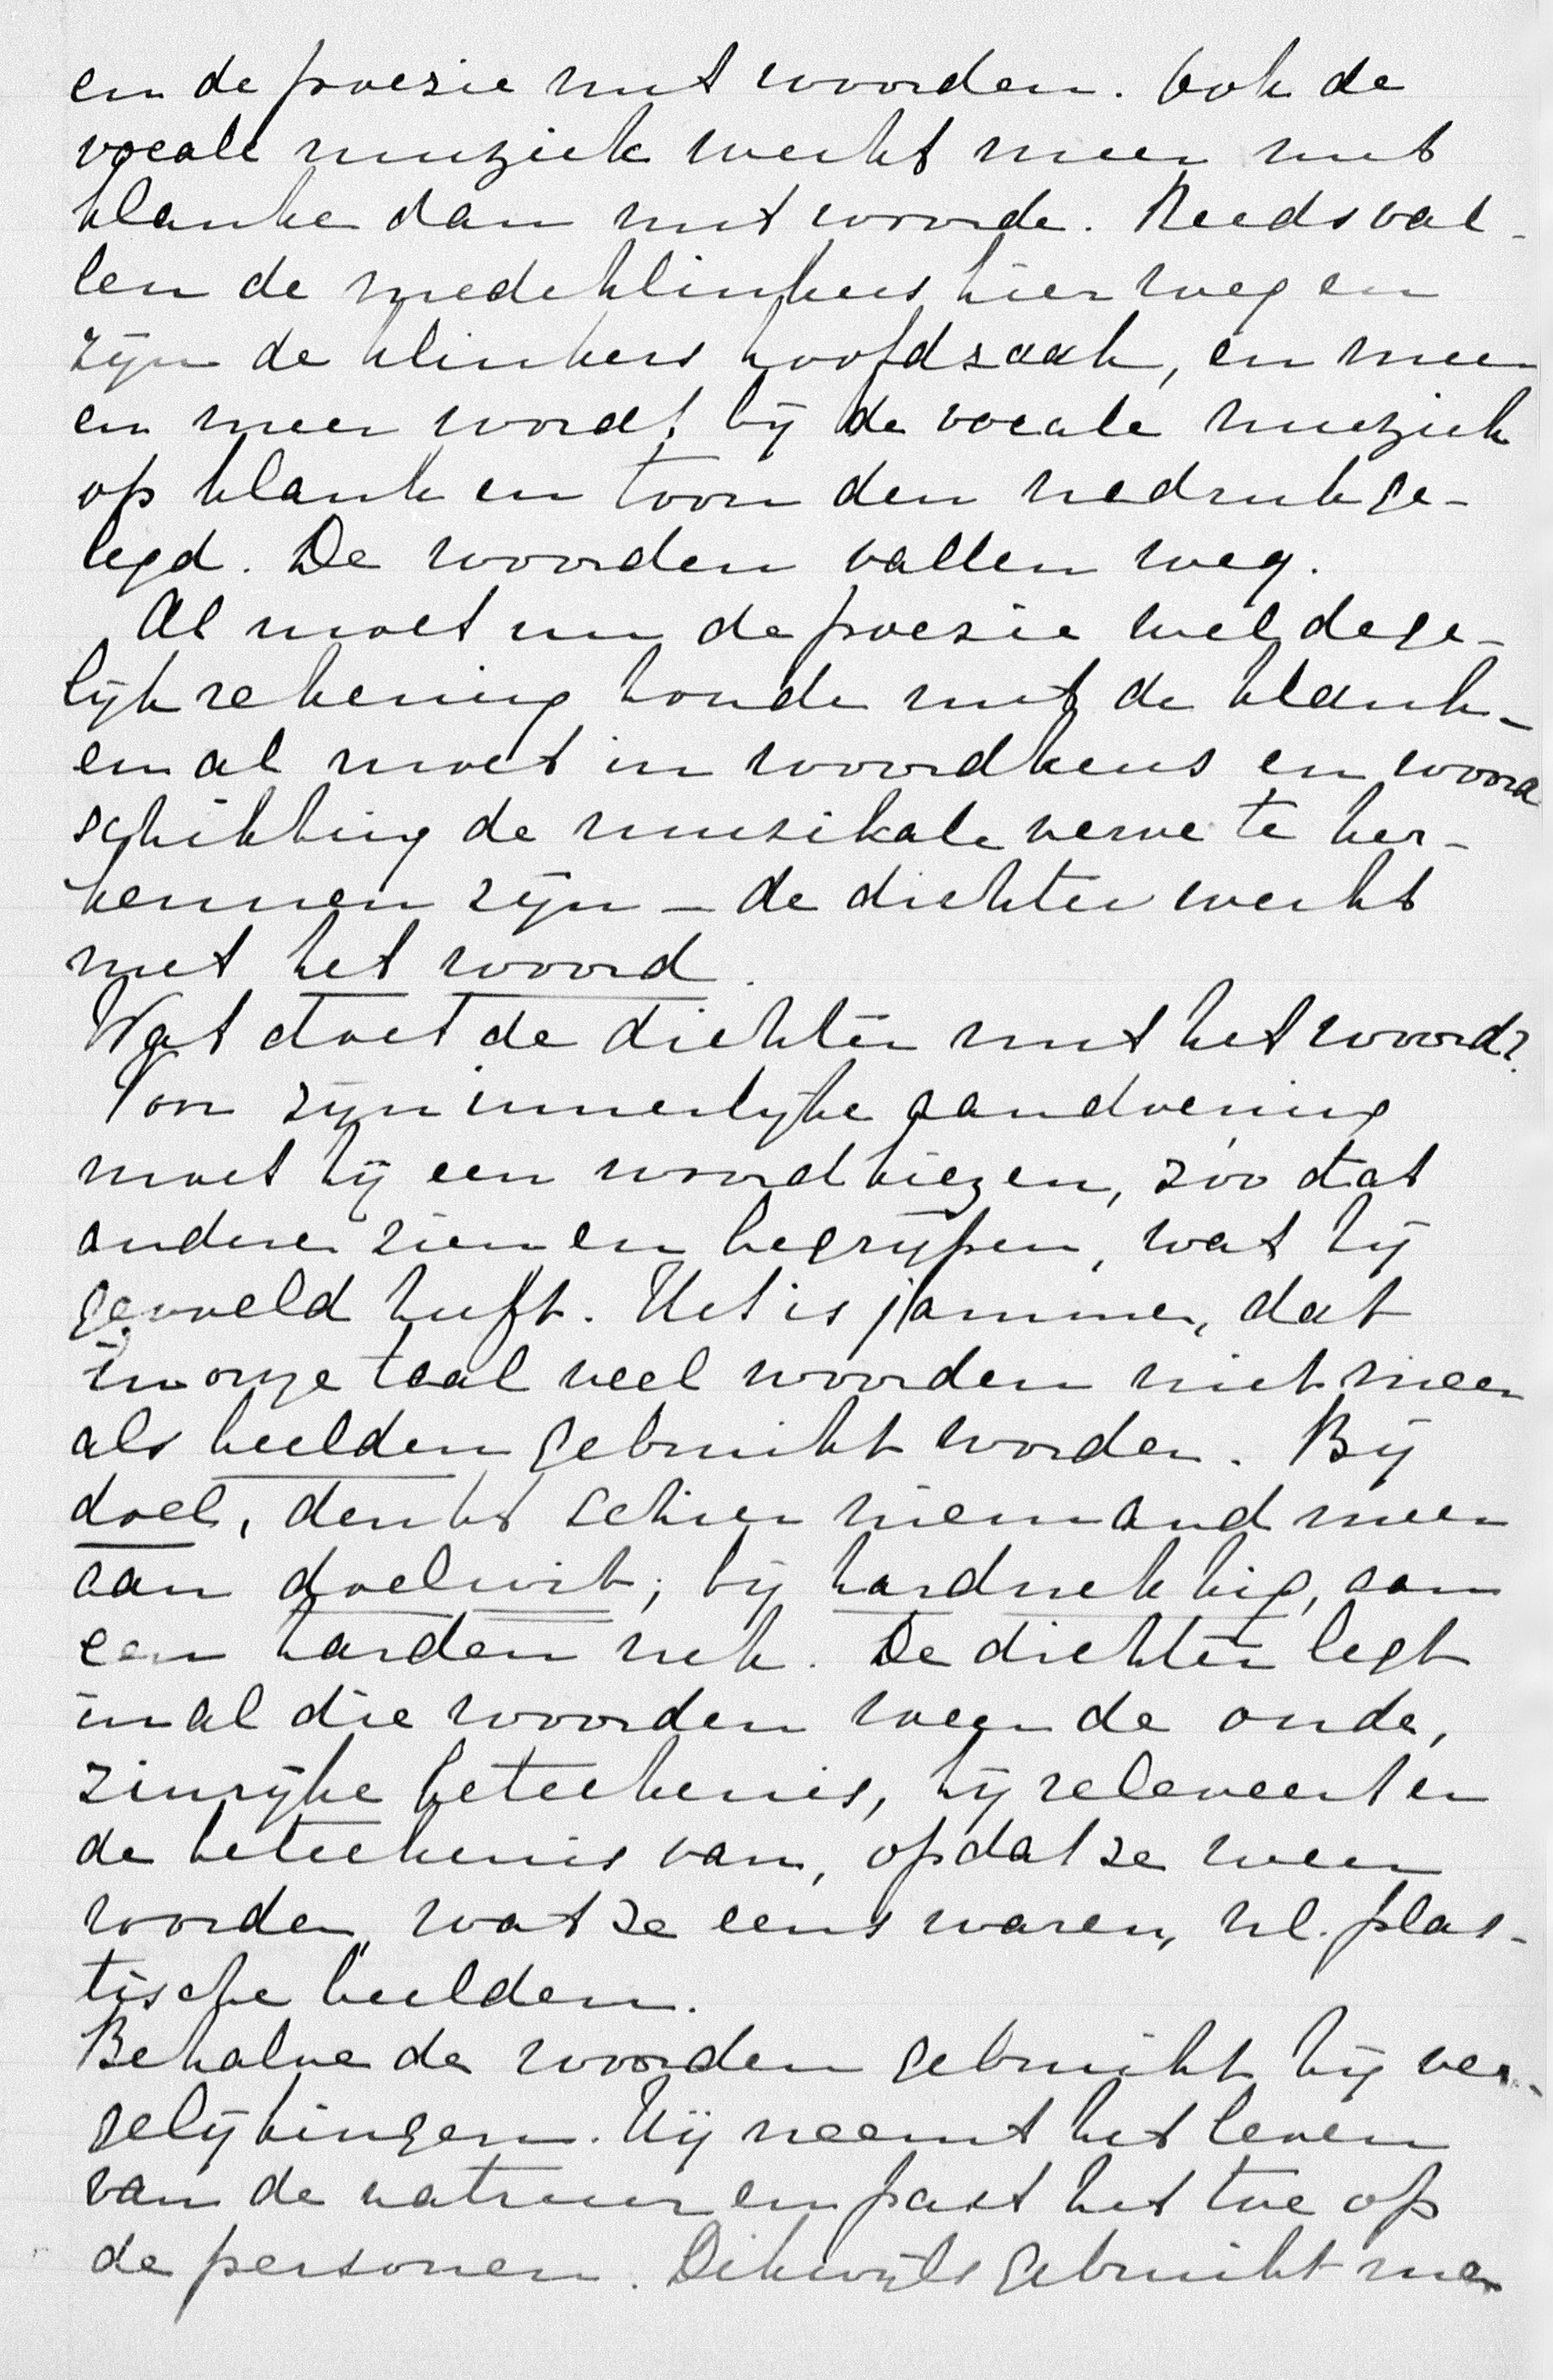 en de poezie met woorden. Ook de
vocale muziek werkt meer met
klanke dan met woorde. Reeds val-
len de medeklinkers hier weg en
zijn de klinkers hoofdzaak, en meer
en meer wordt bij de vocale muziek
op klank en toon den nadruk ge-
legd. De woorden vallen weg.
Al moet nu de poezie wel dege-
lijk rekening houde met de klank-
en al moet in woordkeus en woord
schikking de muzikale nerve te her-
kennen zijn – de dichter werkt
met het woord.
Wat doet de dichter met het woord?
Voor zijn innerlijke aandoening
moet hij een woord kiezen, zóó dat
andere zien en begrijpen, wat hij
gevoeld heeft. Het is jammer, dat
in onze taal veel woorden niet meer
als beelden gebruikt worden. Bij
doel, denkt schier niemand meer
aan doelwit; bij hardnekkig, aan
een harden nek. De dichter legt
in al die woorden weer de oude,
zinrijke beteekenis, hij releveert er
de beteekenis van, opdat ze weer
worden wat ze eens waren, nl. plas-
tische beelden.
Behalve de woorden gebruikt hij ver-
gelijkingen. Hij neemt het leven
van de natuur en past het toe op
de personen. Dikwijls gebruikt men